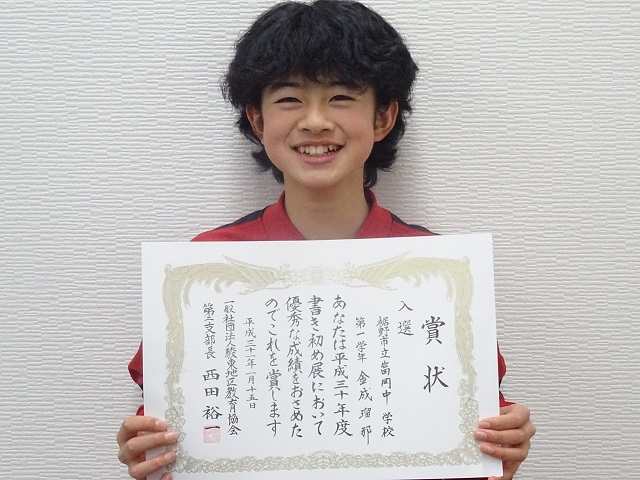 賞状
入選
裾野市立富岡中学校
第一学年 金成瑠那
あなたは平成三十年度
書き初め展において
優秀な成績をおさめた
のでこれを賞します
平成三十一年一月十五日
一般社団法人駿東地区教育協会
第二支部長 西田裕一